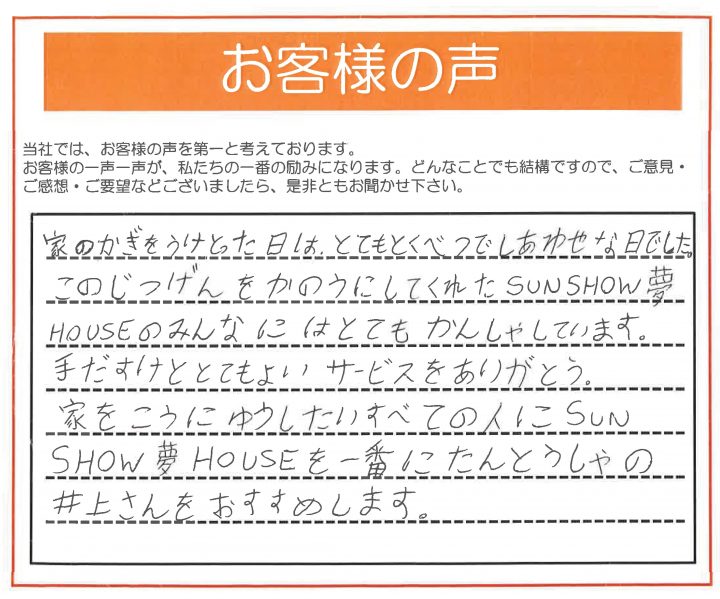 お客様の声
当社では、お客様の声を第一と考えております。
お客様の一声一声が、私たちの一番の励みになります。どんなことでも結構ですので、ご意見・
ご感想・ご要望などございましたら、是非ともお聞かせ下さい。
家のかぎをうけとった日は、とてもとくべつでしあわせな日でした。
このじつげんをかのうにしてくれたSUNSHOW夢
HOUSEのみんなにはとてもかんしゃしています。
手だすけととてもよいサービスをありがとう。
家をこうにゆうしたいすべての人にSUN
SHOW夢HOUSEを一番にたんとうしゃの
井上さんをおすすめします。